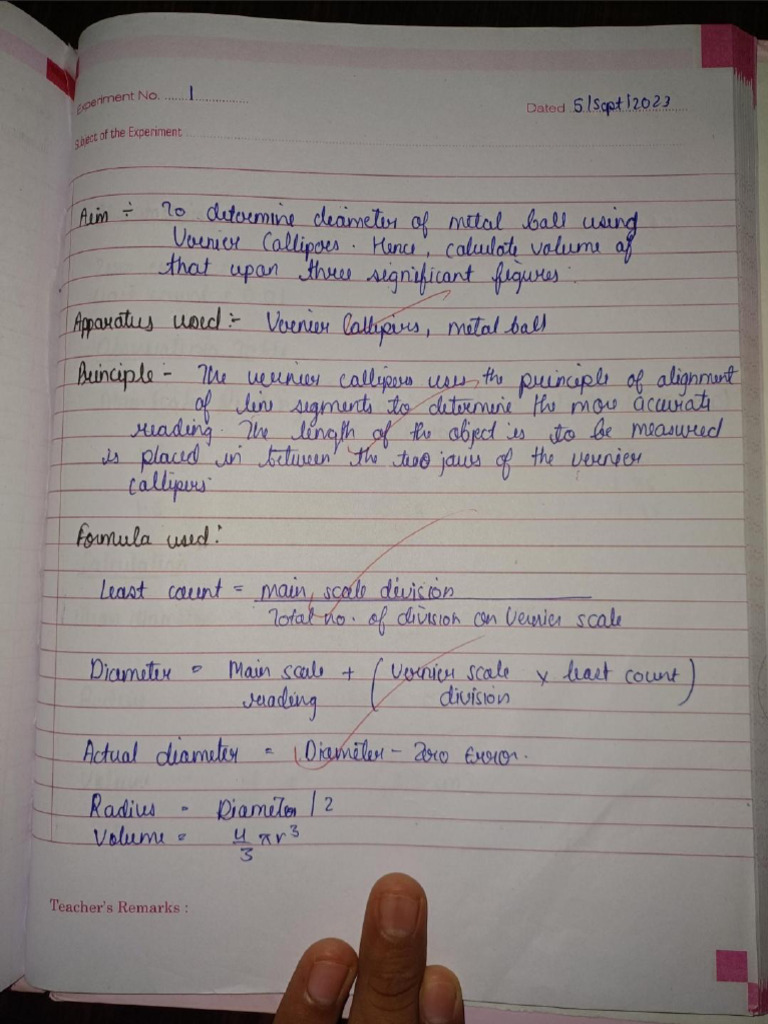 Experiment No. 1
Dated 5/Sept/2023
Subject of the Experiment
Aim ÷ To determine diameter of metal ball using
Vernier Callipers. Hence, calculate volume of
that upon three significant figures.
Apparatus used:- Vernier Callipers, metal ball
Principle - The vernier callipers uses the principle of alignment
of line segments to determine the more accurate
reading. The length of the object is to be measured
is placed in between the two jaws of the vernier
callipers
Formula used:
Least count = main scale division
Total no. of division on Vernier scale
Diameter = Main scale + (Vernier scale x least count)
reading division
Actual diameter = Diameter - Zero Error.
Radius = Diameter / 2
Volume = 4/3 πr³
Teacher's Remarks :